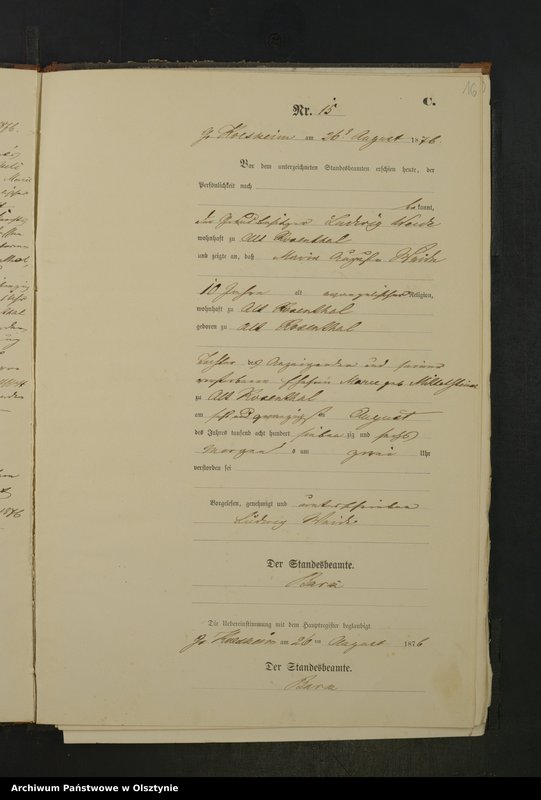 C.
Nr. 15
Gr. am 26t August 1876.
Vor dem unterzeichneten Standesbeamten erschien heute, der
Persönlichkeit nach
bekannt,
der Ludwig Weide
wohnhaft zu Alt Rosenthal
und zeigte an, daß Maria Auguste Weide
10 Jahre alt evangelischer Religion,
wohnhaft zu Alt Rosenthal
geboren zu Alt Rosenthal
Tochter des Anzeigenden und seiner
verstorbenen Ehefrau Marie geb.
zu Alt Rosenthal
am sechs und zwanzigsten August
des Jahres tausend acht hundert siebenzig und sechs
Morgens um zwei Uhr
verstorben sei
Vorgelesen, genehmigt und unterschrieben
Ludwig Weide
Der Standesbeamte.
Die Uebereinstimmung mit dem Hauptregister beglaubigt
Gr. am 26ten August 1876
Der Standesbeamte.
Archiwum Państwowe w Olsztynie